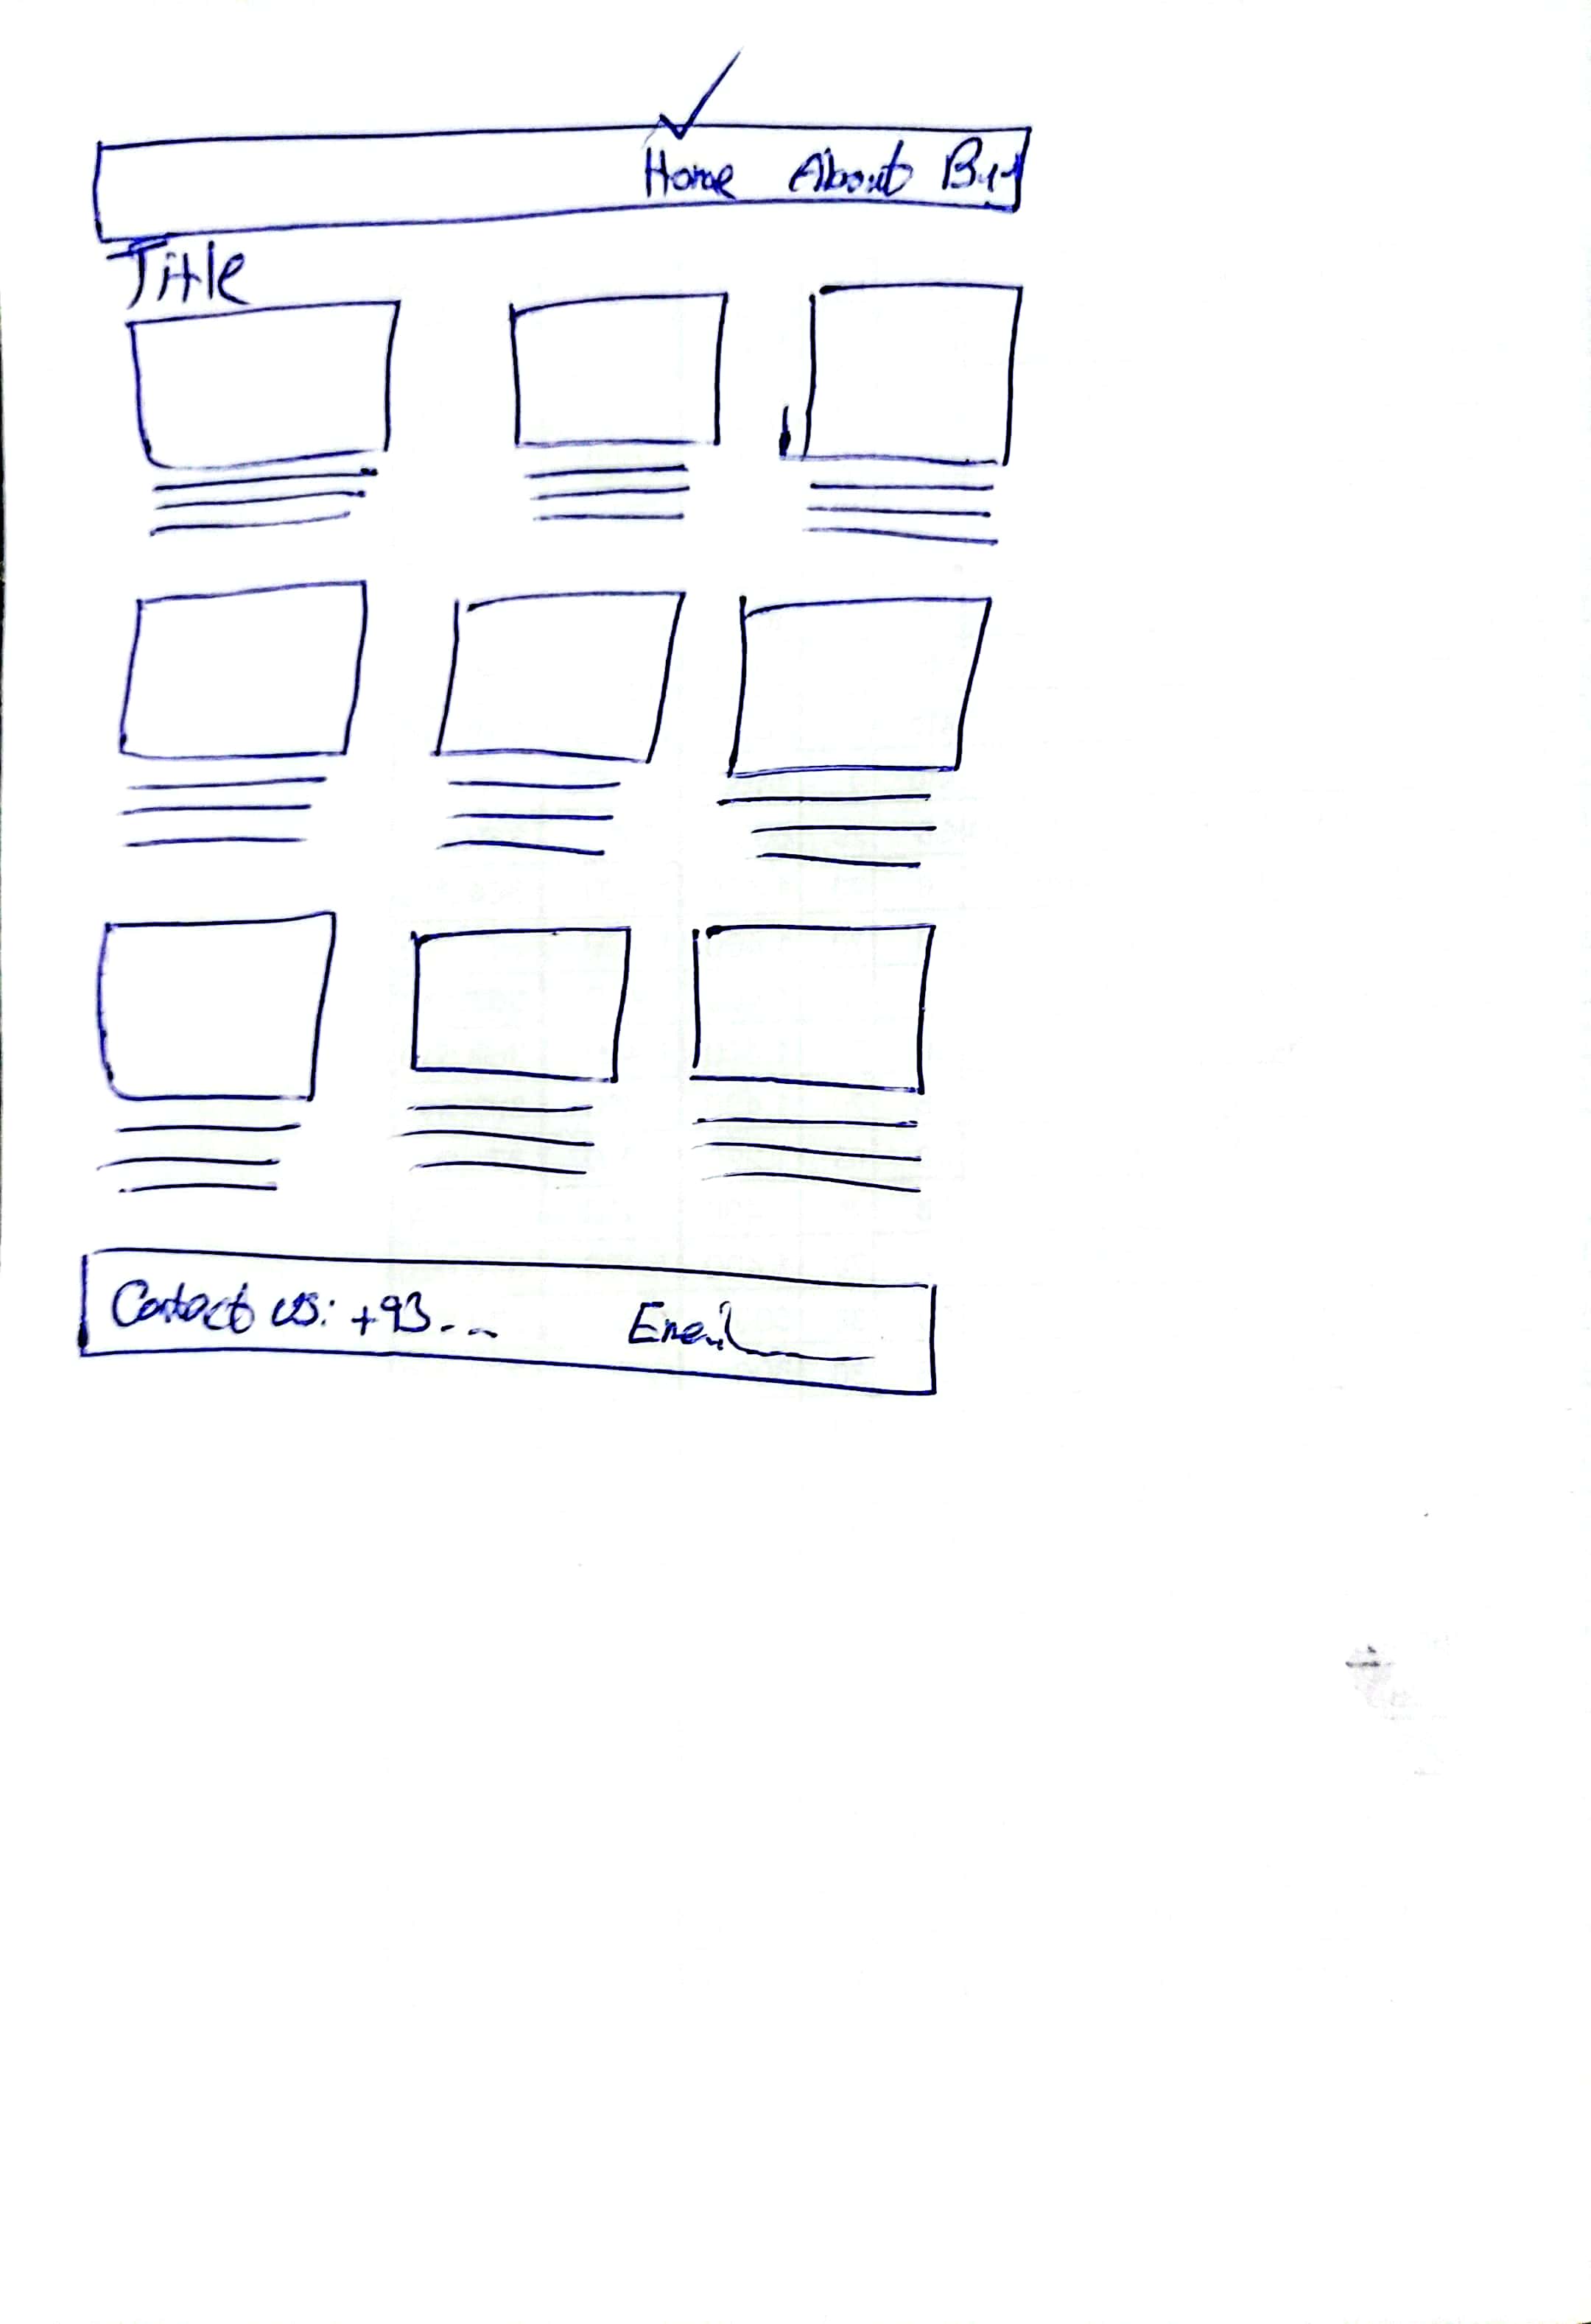 Home About Buy
Title
Contact us: +93...
Email